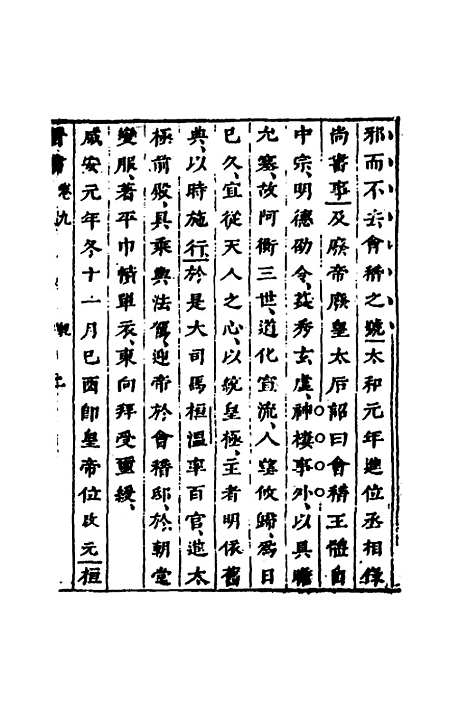 邪而不去會稽之號太和元年進位丞相錄
尚書事及廢帝廢皇太后詔曰會稽王體自
中宗、明德劭令、英秀玄虛、神棲事外、以具瞻
允塞、故阿衡三世、道化宣流、人望攸歸、爲日
已久、宜從天人之心、以統皇極、主者明依舊
典、以時施行於是大司馬桓溫率百官、進太
極前殿、具乘輿法駕、迎帝於會稽邸、於朝堂
變服、著平巾幘單衣、東向拜受璽綬、
咸安元年冬十一月己酉即皇帝位改元桓
晉書 卷九